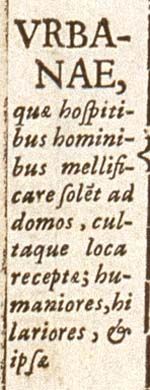 VRBA-
NAE,
quæ hoſpiti-
bus homini-
bus mellifi-
care ſolẽt ad
domos, cul-
taque loca
receptæ; hu-
maniores, hi
lariores, &
ipſæ